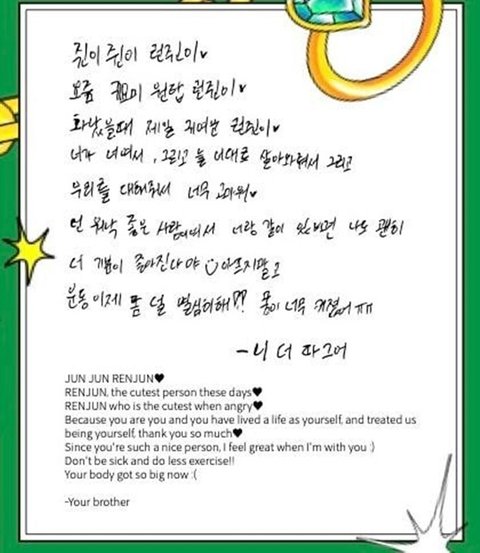 쥔이 쥔이 런쥔이♥
요즘 귀요미 원탑 런쥔이♥
화났을때 제일 귀여운 런쥔이♥
너가 너여서, 그리고 늘 너대로 살아와줘서 그리고
우리를 대해줘서 너무 고마워♥
넌 워낙 좋은 사람이여서 너랑 같이 있으면 나도 괜히
더 기분이 좋아진다야 ☺ 아프지말고
운동 이제 좀 덜 열심히해!? 몸이 너무 커졌어ㅠㅠ
-니 더
JUN JUN RENJUN♥
RENJUN, the cutest person these days♥
RENJUN who is the cutest when angry♥
Because you are you and you have lived a life as yourself, and treated us
being yourself, thank you so much♥
Since you're such a nice person, I feel great when I'm with you :)
Don't be sick and do less exercise!!
Your body got so big now :(
-Your brother